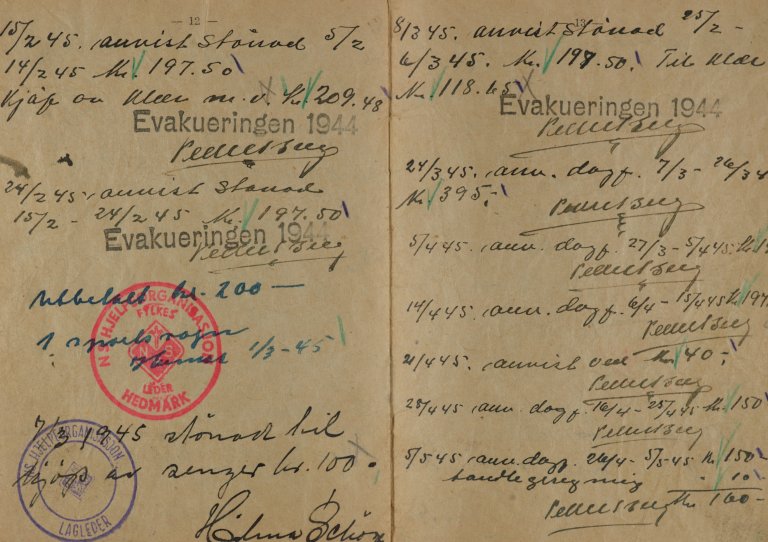 — 12 —
15/2 45. anvist Stønad 5/2
14/2 45 Kr. 197.50
Kjøp av klær m.v. Kr 209.48
Evakueringen 1944
24/2 45. anvist Stønad
15/2 - 24/2 45 Kr. 197.50
Evakueringen 1944
Utbetalt kr. 200—
1 sportsvogn
1/3-45
N S HJELPEORGANISASJON
FYLKES
NS
LEDER
HEDMARK
7/3 1945 stønad til
kjøp av senger kr. 100.
NS HJELPEORGANISASJON
LAGLEDER
Hilma Schön
— 13 —
8/3 45. anvist Stønad 25/2 -
6/3 45. Kr. 197.50. Til klær
Kr 118.65
Evakueringen 1944
24/3 45. anv. dagp. 7/3 - 26/3 4
Kr 395.-
5/4 45. anv. dagp. 27/3 - 5/4 45 Kr
14/4 45. anv. dagp. 6/4 - 15/4 45 Kr
21/4 45. anvist ved Kr 40.-
28/4 45 anv. dagp. 16/4 - 25/4 45 Kr. 150
5/5 45 anv. dagp. 26/4 - 5/5 45 Kr 150 -
10 -
Kr 160 -